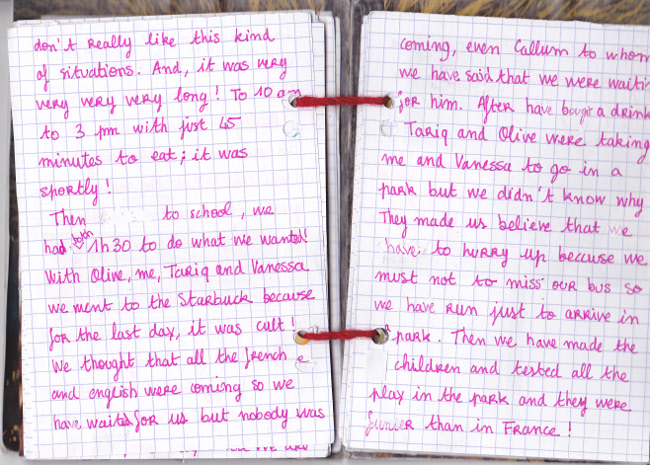 don't really like this kind
of situations. And, it was very
very very very long! To 10 am
to 3 pm with just 45
minutes to eat; it was
sportly!
Then to school, we
had 1h30 to do what we wanted!
With Olive, me, Tariq and Vanessa
we went to the Starbuck because
for the last day, it was cult!
We thought that all the french
and english were coming so we
have waited for us but nobody was
coming, even Callum to whom
we have said that we were waitin
for him. After have bought a drink
Tariq and Olive were taking
me and Vanessa to go in a
park but we didn't know why
They made us believe that we
have to hurry up because we
must not to miss our bus so
we have run just to arrive in
park. Then we have made the
children and tested all the
play in the park and they were
funier than in France!